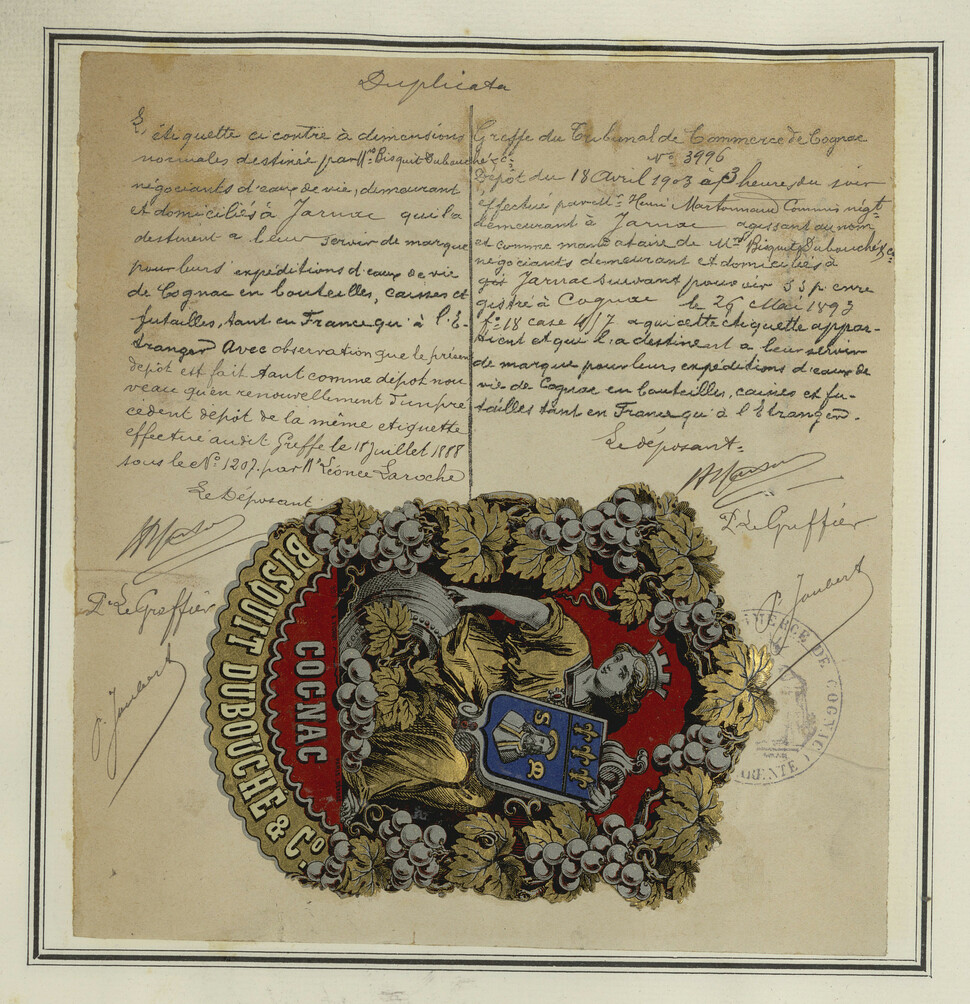 Duplicata
L'étiquette ci contre à dimensions
normales destinée par Mrs Bisquit Dubouché & Cie
négociants d'eaux de vie, demeurant
et domiciliés à Jarnac qui la
destinent a leur servir de marque
pour leurs expéditions d'eaux de vie
de Cognac en bouteilles, caisses et
futailles, tant en France qu'à l'É-
tranger Avec observation que le présent
dépôt est fait tant comme dépôt nou
veau qu'en renouvellement d'un pré
cédent dépôt de la même étiquette
effectué audit Greffe le 18 Juillet 1888
sous le No. 1207. par Mr Léonce Laroche
Le Déposant
Dr Le Greffier
P. Joubert
Greffe du Tribunal de Commerce de Cognac
No 3996
Dépôt du 18 Avril 1903 à 3 heures du soir
effectué par Mr Henri Martonnaud Commis négt-
demeurant à Jarnac agissant au nom
et comme mandataire de Mrs Bisquit Dubouché & Co
négociants demeurant et domiciliés à
Jarnac suivant pouvoir s s p enre
gistré à Cognac le 26 Mai 1893
fo 18 case 4/17 a qui cette étiquette appar-
tient et qui l'a destinent a leur servir
de marque pour leurs expéditions d'eaux de
vie de Cognac en bouteilles, caisses et fu-
tailles tant en France qu'à l'Etranger.
Le déposant
Dr Le Greffier
P. Joubert
BISQUIT DUBOUCHE & Co
COGNAC
S
B
COMMERCE DE COGNAC
CHARENTE